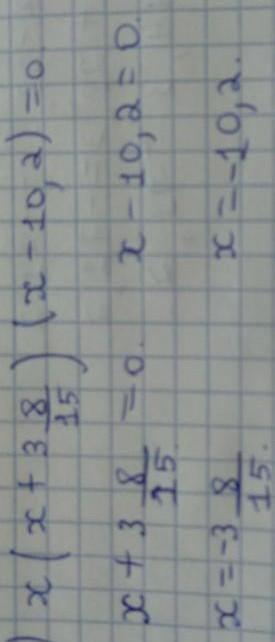 ) x(x + 3 8/15) (x - 10,2) = 0
x + 3 8/15 = 0. x - 10,2 = 0.
x = -3 8/15. x = -10,2.